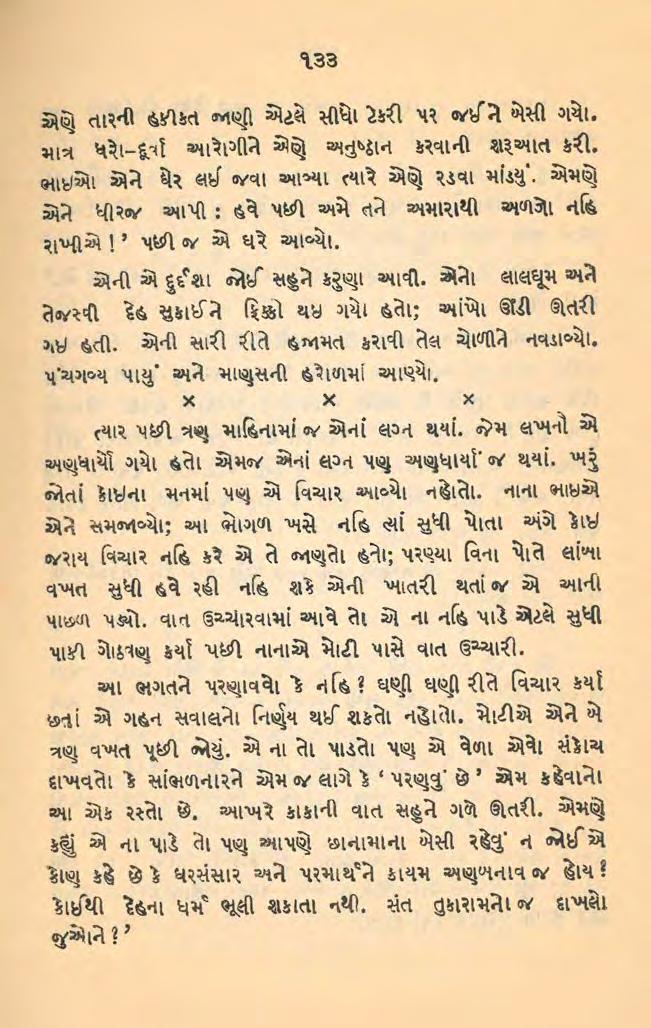 ૧૩૩
એણે તારની હકીકત જાણી એટલે સીધો ટેકરી પર જઈને બેસી ગયો.
માત્ર ધરો-દૂર્વા આરોગીને એણે અનુષ્ઠાન કરવાની શરૂઆત કરી.
ભાઇઓ એને ઘેર લઇ જવા આવ્યા ત્યારે એણે રડવા માંડયું. એમણે
એને ધીરજ આપી : હવે પછી અમે તને અમારાથી અળગો નહિ
રાખીએ ! ’ પછી જ એ ઘરે આવ્યો.
એની એ દુર્દશા જોઈ સહુને કરુણા આવી. એનો લાલઘૂમ અને
તેજસ્વી દેહ સુકાઈને ફિક્કો થઇ ગયો હતો; આંખો ઊંડી ઊતરી
ગઇ હતી. એની સારી રીતે હજામત કરાવી તેલ ચોળીને નવડાવ્યો.
પંચગવ્ય પાયું અને માણસની હરોળમાં આણ્યો.
× × ×
ત્યાર પછી ત્રણ માહિનામાં જ એનાં લગ્ન થયાં. જેમ લખનૌ એ
અણધાર્યો ગયો હતો એમજ એનાં લગ્ન પણ અણધાર્યાં જ થયાં. ખરું
જોતાં કોઇના મનમાં પણ એ વિચાર આવ્યો નહોતો. નાના ભાઇએ
એને સમજાવ્યો; આ ભોગળ ખસે નહિ ત્યાં સુધી પોતા અંગે કોઇ
જરાય વિચાર નહિ કરે એ તે જાણતો હતો; પરણ્યા વિના પોતે લાંબા
વખત સુધી હવે રહી નહિ શકે એની ખાતરી થતાં જ એ આની
પાછળ પડ્યો. વાત ઉચ્ચારવામાં આવે તો એ ના નહિ પાડે એટલે સુધી
પાકી ગોઠવણ કર્યા પછી નાનાએ મોટી પાસે વાત ઉચ્ચારી.
આ ભગતને પરણાવવો કે નહિ ? ઘણી ઘણી રીતે વિચાર કર્યા
છતાં એ ગહન સવાલનો નિર્ણય થઈ શકતો નહોતો. મોટીએ એને બે
ત્રણ વખત પૂછી જોયું. એ ના તો પાડતો પણ એ વેળા એવો સંકોચ
દાખવતો કે સાંભળનારને એમ જ લાગે કે ‘ પરણવું છે ’ એમ કહેવાનો
આ એક રસ્તો છે. આખરે કાકાની વાત સહુને ગળે ઊતરી. એમણે
કહ્યું એ ના પાડે તો પણ આપણે છાનામાના બેસી રહેવું ન જોઈ એ
કોણ કહે છે કે ઘરસંસાર અને પરમાર્થને કાયમ અણબનાવ જ હોય ?
કોઈથી દેહના ધર્મ ભૂલી શકાતા નથી. સંત તુકારામનો જ દાખલો
જુઓને ? ’